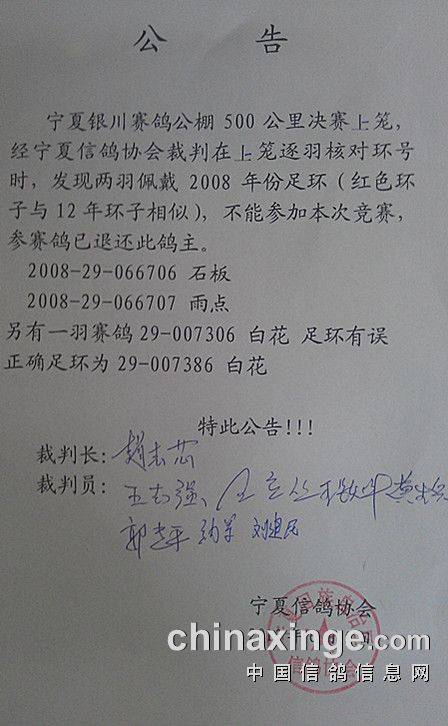 公 告
宁夏银川赛鸽公棚 500 公里决赛上笼，
经宁夏信鸽协会裁判在上笼逐羽核对环号
时，发现两羽佩戴 2008 年份足环（红色环
子与 12 年环子相似），不能参加本次竞赛，
参赛鸽已退还此鸽主。
2008-29-066706 石板
2008-29-066707 雨点
另有一羽赛鸽 29-007306 白花 足环有误
正确足环为 29-007386 白花
特此公告!!!
裁判长：
裁判员：王志强、
刘建民
宁夏信鸽协会
信鸽协会
chinaxinge.com
中国信鸽信息网